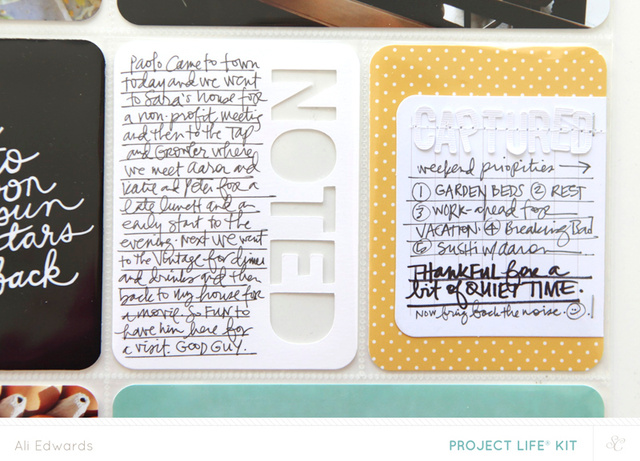 to
oon
sun
stars
back
Paolo Came to town
today and we went
to Sara's house for
a non-profit meeting
and then to the Tap
and Growler where
we meet Aaron and
Katie and Peter for a
late lunch and an
early start to the
evening. Next we went
to the Vintage for dinner
and drinks and then
back to my house for
a movie. So FUN to
have him here for
a visit. GOOD GUY.
NOTED
CAPTURED
weekend priorities →
① GARDEN BEDS ② REST
③ WORK-ahead for
VACATION ④ Breaking Bad
⑤ Sushi w/aaron
THANKFUL for a
bit of QUIET TIME.
Now bring back the noise. ☺
Ali Edwards
PROJECT LIFE® KIT
SC